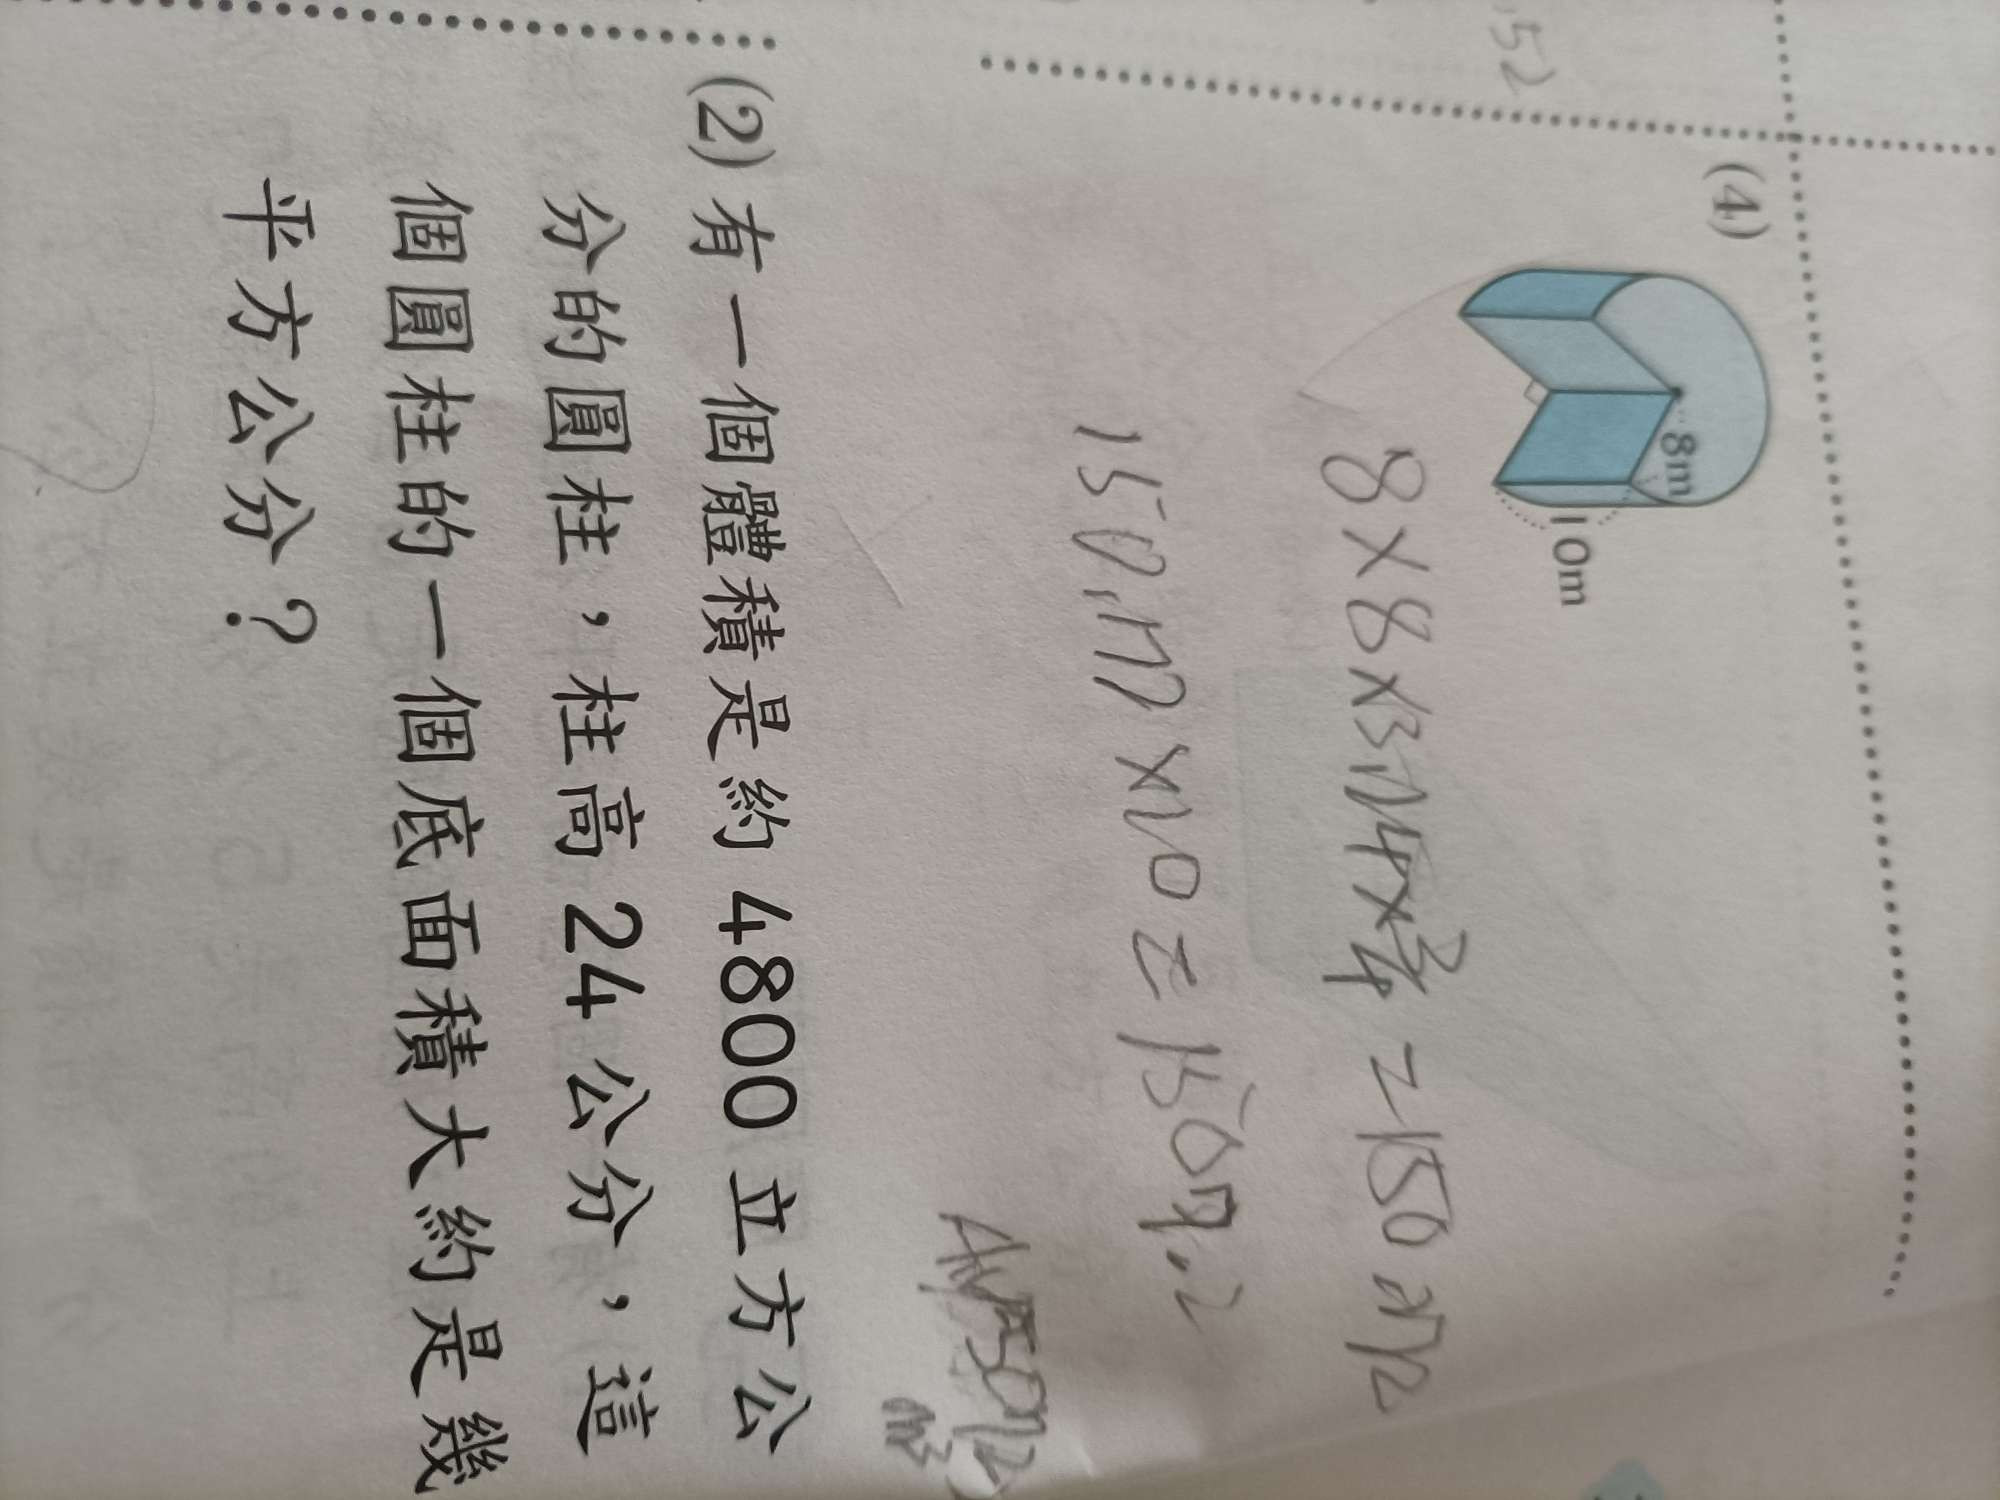 .52
(4)
8m
10m
8×8×3.14×3/4=150.72
150.72×10=1507.2
A:1507.2
m³
(2)有一個體積是約4800立方公
分的圓柱，柱高24公分，這
個圓柱的一個底面積大約是幾
平方公分？